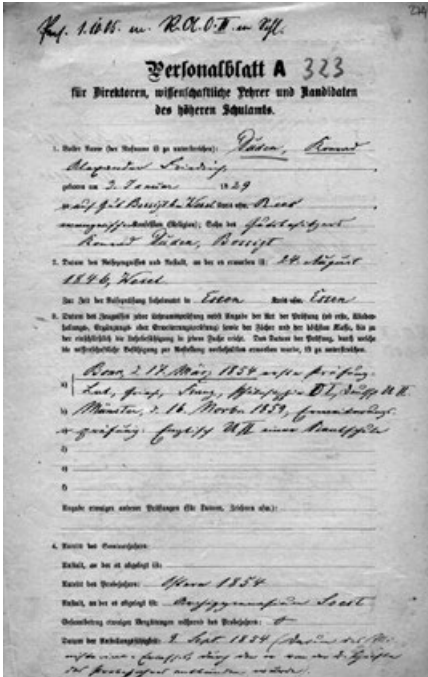 274
Pens. 1.10.05. m. R.A.O. III m. Schl.
Personalblatt A 323
für Direktoren, wissenschaftliche Lehrer und Kandidaten
des höheren Schulamts.
1. Voller Name (der Rufname ist zu unterstreichen): Duden, Konrad
Alexander Friedrich,
geboren am 3. Januar 1829
auf Gut Bossigt b. Wesel Kreis Rees
evangelischer Konfession (Religion); Sohn des Gutsbesitzers
Konrad Duden, Bossigt
2. Datum des Reifezeugnisses und Anstalt, an der es erworben ist: 24. August
1846, Wesel
Zur Zeit der Reifeprüfung beheimatet in Essen Kreis Essen
3. Datum des Zeugnisses jeder Lehramtsprüfung nebst Angabe der Art der Prüfung (ob erste, Wiederholungs-, Ergänzungs- oder Erweiterungsprüfung) sowie der Fächer und der höchsten Klasse, bis zu
der einschließlich die Lehrbefähigung in jedem Fache reicht. Das Datum der Prüfung, durch welche
die wissenschaftliche Befähigung zur Anstellung erworben wurde, ist zu unterstreichen.
a) Bonn, d. 17. März 1854 erste Prüfung.
Lat., Griech., Franz., Philosophie O I, Deutsch U II
b) Münster, d. 16. Novbr 1859, Erweiterungs-
c) prüfung: Englisch U II einer Realschule
d)
e)
f)
Angabe etwaiger anderer Prüfungen (für Turnen, Zeichnen usw.):
4. Antritt des Seminarjahres:
Anstalt, an der es abgelegt ist:
Antritt des Probejahres: Ostern 1854
Anstalt, an der es abgelegt ist: Archigymnasium Soest
Gesamtbetrag etwaiger Vergütungen während des Probejahres:
Datum der Anstellungsfähigkeit: 9. Sept. 1854 (Datum des Mi-
nisterial-Erlasses, durch den er von der 2. Hälfte
des Probejahres entbunden wurde).